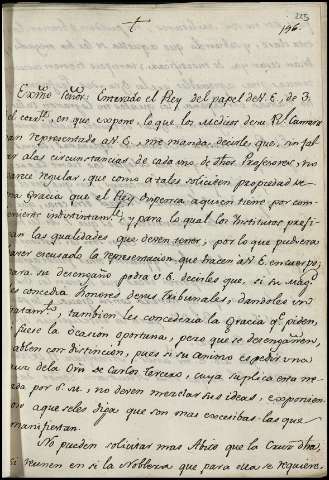 225
196.
Exmo Señor: Enterado el Rey del papel de V.E. de 3,
el corrte, en que expone, lo que los Medicos de su Rl Camara
an representado a V.E., me manda, decirle que, sin fal
ar a las circunstancias de cada uno de dhos Profesores, no
arece regular, que como á tales soliciten propiedad de
na Gracia que el Rey dispensa a quien tiene por con
veniente indistintamte, y para lo qual los Institutos prefi
an las qualidades que deven tener, por lo que pudieran
aver escusado la representacion que hacen a V.E. en cuerpo,
ara su desengaño podra V.E. decirles que, si su Magd
es concedia honores de sus tribunales, dandoles in
tambien les concederia la Gracia qe piden,
fuese la ocasion oportuna, pero que se desengañen,
ablen con distincion, pues si su animo es pedir una
ruz de la Orn de Carlos Tercero, cuya suplica está ne
ada por S.M., no deven mezclar sus ideas, exponien
ose a que seles diga que son mas excesibas las que
manifiestan.
No pueden solicitar mas Abito que la Cruz dha,
si reunen en si la Nobleza que para ella se requiere,